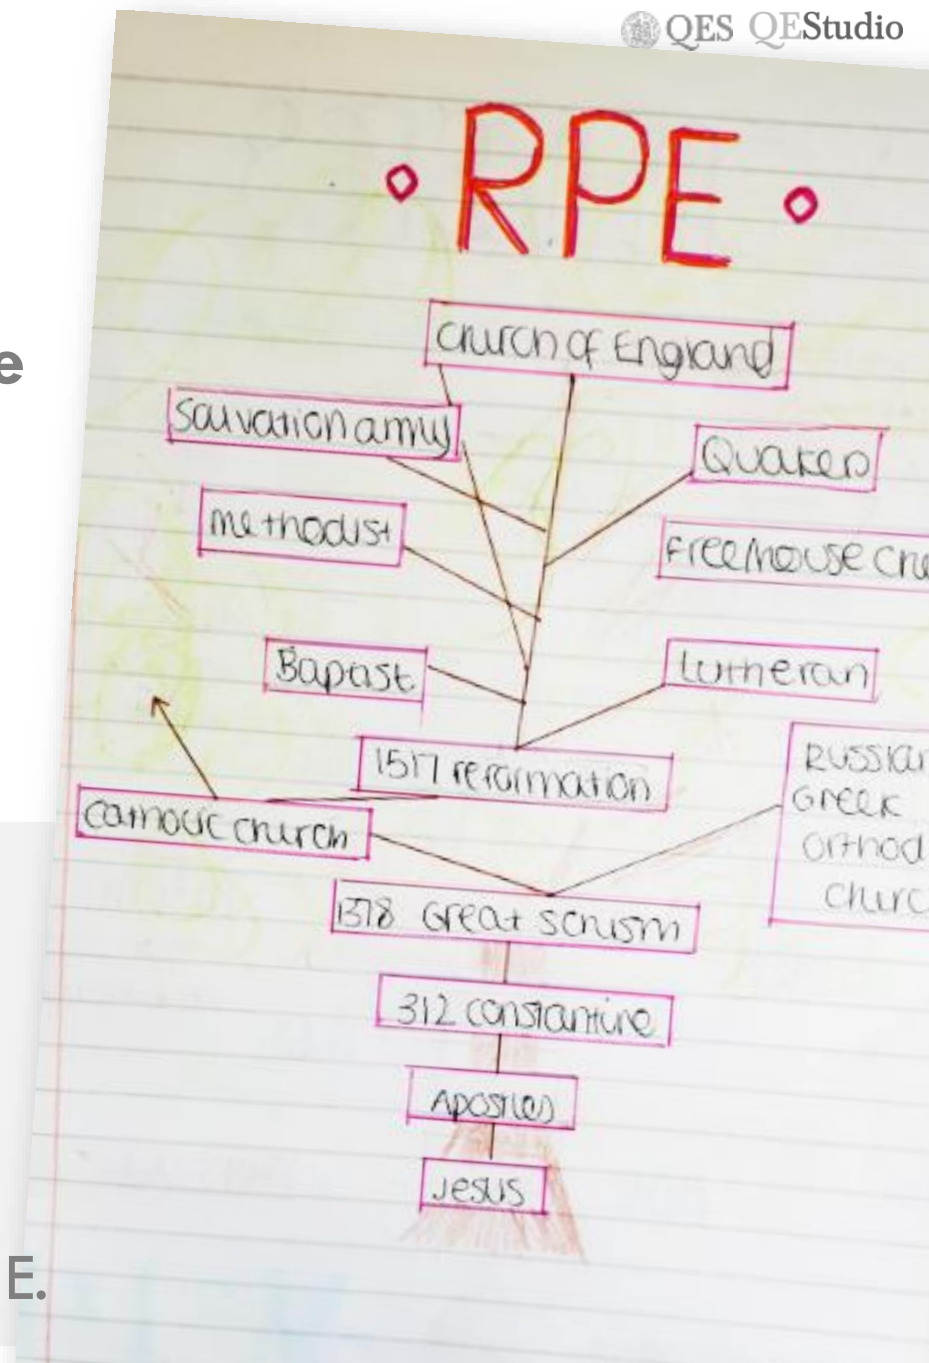 QES QEStudio
RPE
e
Church of England
Salvation army
Quakers
methodist
Free/house
Bapast
Lutheran
1517 reformation
Russian
Greek
catholic church
1378 Great schism
312 constantine
Apostles
Jesus
E.